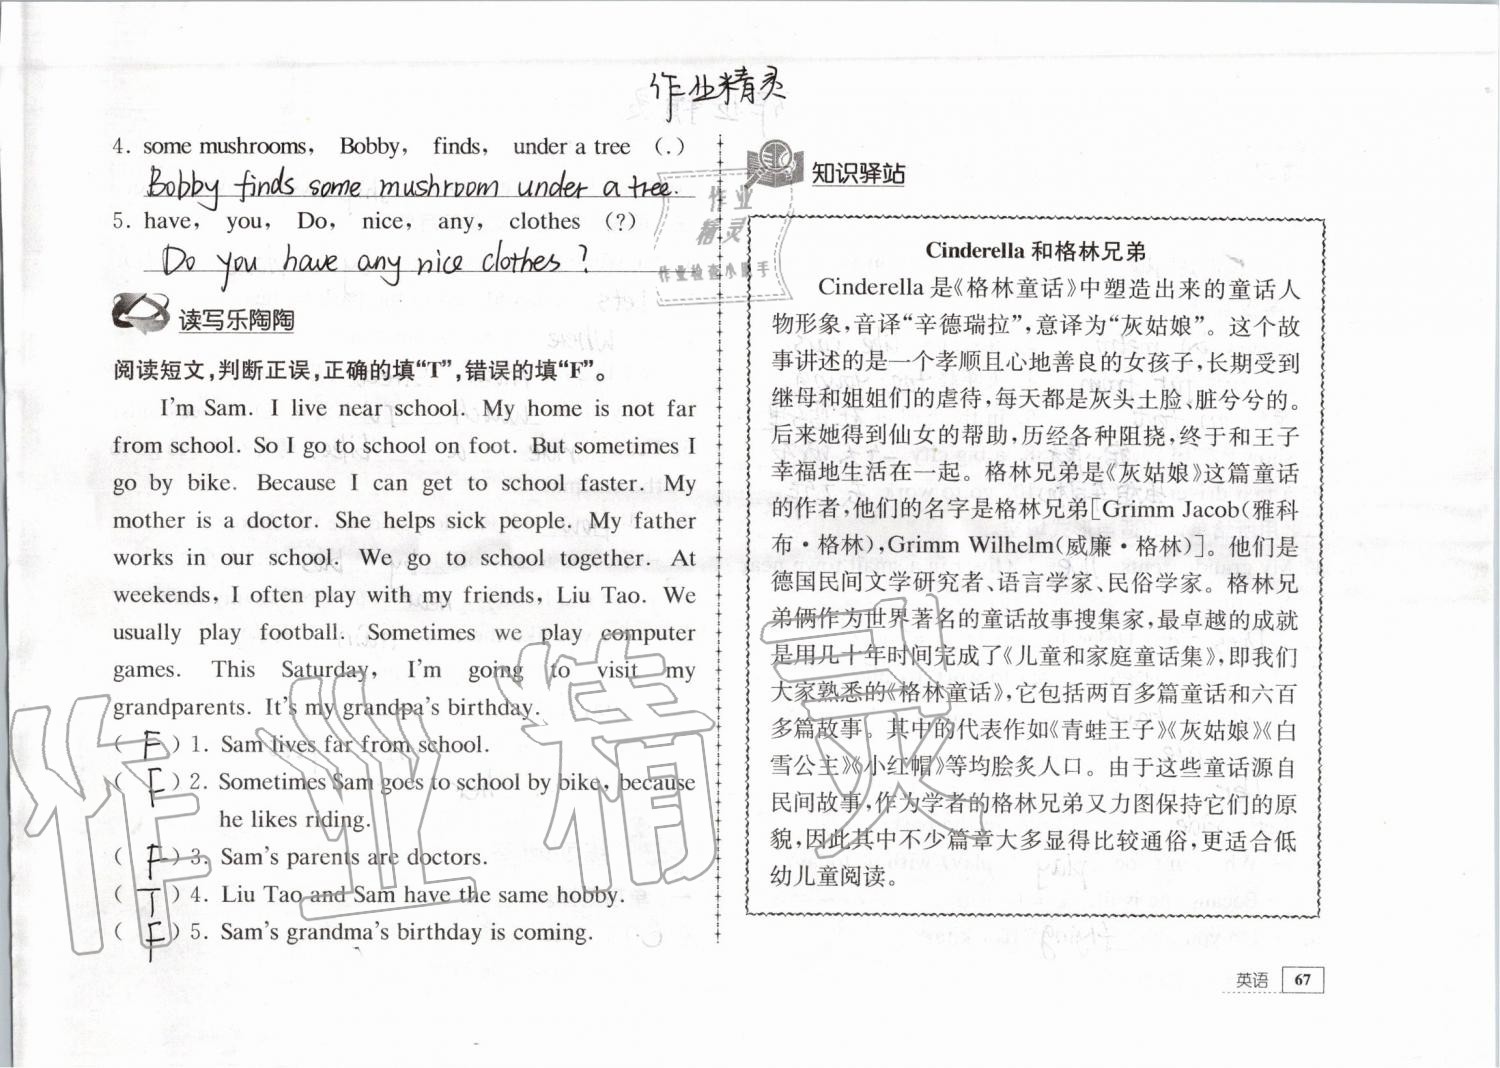 作业精灵
4. some mushrooms, Bobby, finds, under a tree (.)
Bobby finds some mushroom under a tree.
5. have, you, Do, nice, any, clothes (?)
Do you have any nice clothes?
读写乐陶陶
阅读短文,判断正误,正确的填“T”,错误的填“F”。
I'm Sam. I live near school. My home is not far
from school. So I go to school on foot. But sometimes I
go by bike. Because I can get to school faster. My
mother is a doctor. She helps sick people. My father
works in our school. We go to school together. At
weekends, I often play with my friends, Liu Tao. We
usually play football. Sometimes we play computer
games. This Saturday, I'm going to visit my
grandparents. It's my grandpa's birthday.
( F ) 1. Sam lives far from school.
( F ) 2. Sometimes Sam goes to school by bike, because
he likes riding.
( F ) 3. Sam's parents are doctors.
( T ) 4. Liu Tao and Sam have the same hobby.
( F ) 5. Sam's grandma's birthday is coming.
作业
精灵
作业检查小助手
知识驿站
Cinderella 和格林兄弟
Cinderella 是《格林童话》中塑造出来的童话人
物形象,音译“辛德瑞拉”,意译为“灰姑娘”。这个故
事讲述的是一个孝顺且心地善良的女孩子,长期受到
继母和姐姐们的虐待,每天都是灰头土脸、脏兮兮的。
后来她得到仙女的帮助,历经各种阻挠,终于和王子
幸福地生活在一起。格林兄弟是《灰姑娘》这篇童话
的作者,他们的名字是格林兄弟[Grimm Jacob(雅科
布·格林),Grimm Wilhelm(威廉·格林)]。他们是
德国民间文学研究者、语言学家、民俗学家。格林兄
弟俩作为世界著名的童话故事搜集家,最卓越的成就
是用几十年时间完成了《儿童和家庭童话集》,即我们
大家熟悉的《格林童话》,它包括两百多篇童话和六百
多篇故事。其中的代表作如《青蛙王子》《灰姑娘》《白
雪公主》《小红帽》等均脍炙人口。由于这些童话源自
民间故事,作为学者的格林兄弟又力图保持它们的原
貌,因此其中不少篇章大多显得比较通俗,更适合低
幼儿童阅读。
作业精灵
英语 67